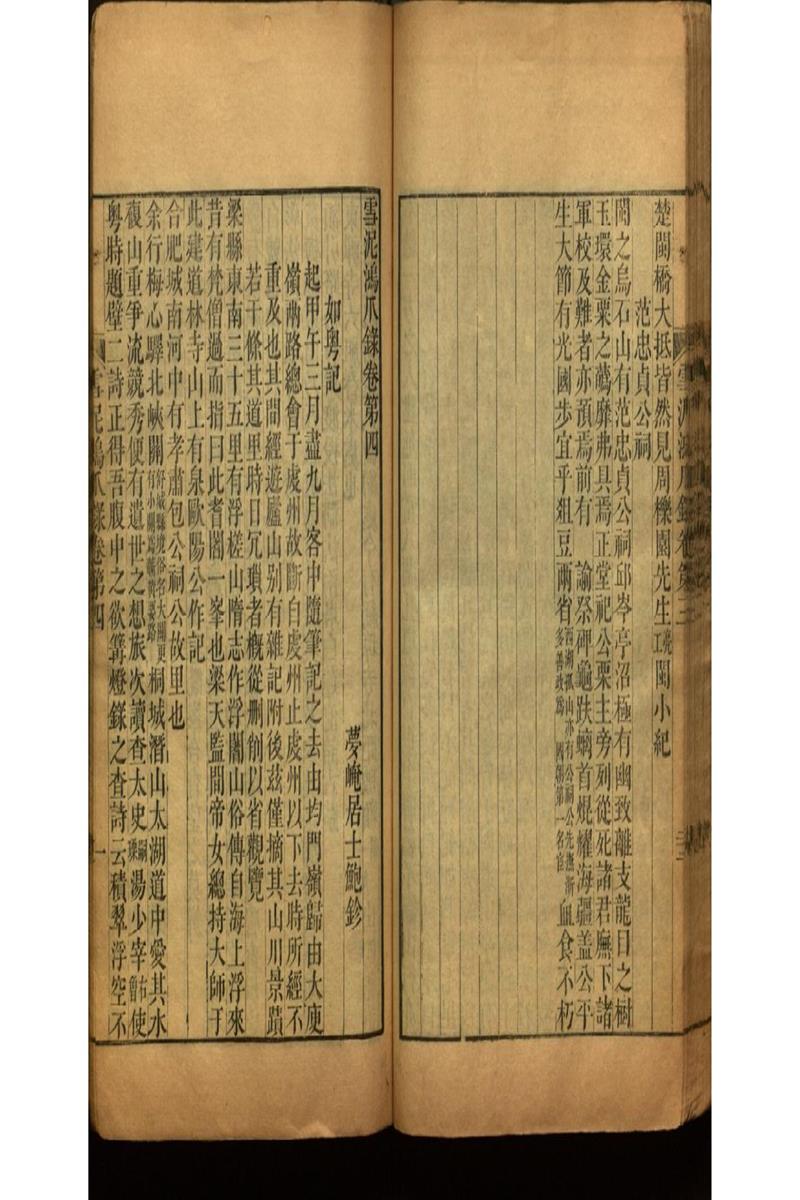 楚閩橋大抵皆然見周櫟園先生亮工閩小紀
范忠貞公祠
閩之烏石山有范忠貞公祠邱岑亭沼極有幽致離支龍目之樹
玉環金粟之蘤靡弗具焉正堂祀公栗主旁列從死諸君廡下諸
軍校及難者亦預焉前有 諭祭碑龜趺螭首焜耀海疆盖公平
生大節有光國步宜乎俎豆兩省西湖孤山亦有公祠公先撫浙多善政為 國朝第一名宦血食不朽
雪泥鴻爪錄卷第四
夢崦居士鮑鉁
如粤記
起甲午三月盡九月客中隨筆記之去由均門嶺歸由大庾
嶺兩路總會于虔州故斷自虔州止虔州以下去時所經不
重及也其間經遊廬山别有雜記附後兹僅摘其山川景蹟
若干條其道里時日冗瑣者概從刪削以省觀覽
梁縣東南三十五里有浮槎山隋志作浮闍山俗傳自海上浮來
昔有梵僧過而指曰此耆闍一峯也梁天監間帝女總持大師于
此建道林寺山上有泉歐陽公作記
合肥城南河中有孝肅包公祠公故里也
余行梅心驛北峽關舒城縣境俗名大關更有小關為轍要路桐城潛山太湖道中愛其水
複山重爭流競秀便有遺世之想旅次讀查太史嗣瑮湯少宰右曾使
粤時題壁二詩正得吾腹中之欲篝燈錄之查詩云積翠浮空不
雪泥鴻爪錄卷第四
一